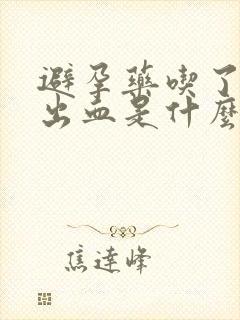 避孕藥喫了
出血是什麼
焦達峰